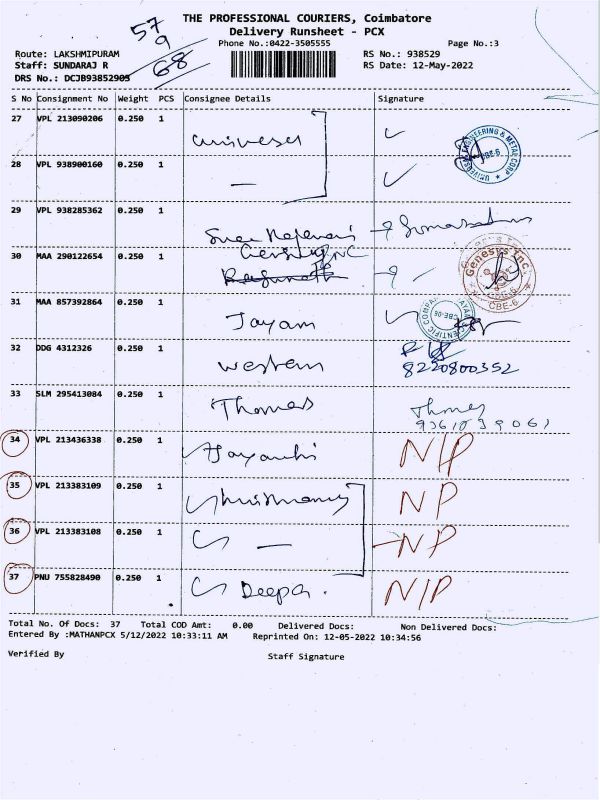 THE PROFESSIONAL COURIERS, Coimbatore
57
Delivery Runsheet - PCX
9
Phone No.:0422-3505555 Page No.:3
68
Route: LAKSHMIPURAM RS No.: 938529
Staff: SUNDARAJ R RS Date: 12-May-2022
DRS No.: DCJB93852903
S No Consignment No Weight PCS Consignee Details Signature
27 VPL 213090206 0.250 1 universal
UNIVERSAL ENGINEERING & METAL CORP
28 VPL 938900160 0.250 1 —
29 VPL 938285362 0.250 1
30 MAA 290122654 0.250 1
Genesys Inc.
CBE-6
31 MAA 857392864 0.250 1 Jayam
CBE-06
32 DDG 4312326 0.250 1 western
8220800352
33 SLM 295413084 0.250 1 Thomas Thomas
34 VPL 213436338 0.250 1 Jayanthi N/P
35 VPL 213383109 0.250 1 NP
36 VPL 213383108 0.250 1 — NP
37 PNU 755828490 0.250 1 Deepa. N/P
Total No. Of Docs: 37 Total COD Amt: 0.00 Delivered Docs: Non Delivered Docs:
Entered By :MATHANPCX 5/12/2022 10:33:11 AM Reprinted On: 12-05-2022 10:34:56
Verified By Staff Signature